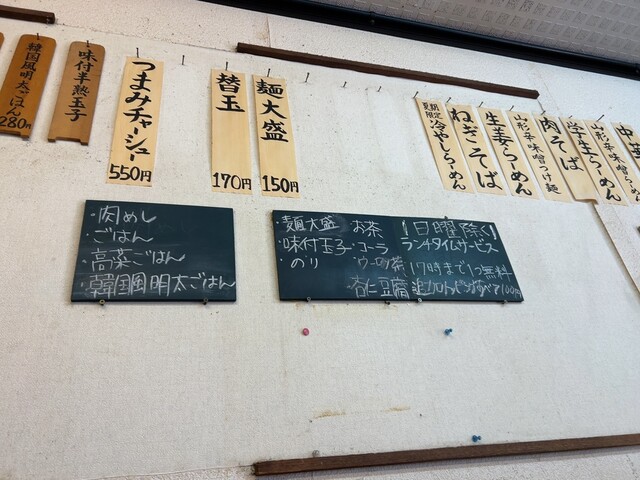 韓国風明太ごはん
280円
味付半熟玉子
つまみチャーシュー
550円
替玉
170円
麺大盛
150円
夏期限定
冷やしらーめん
ねぎそば
生姜らーめん
山形辛味噌つけ麺
肉そば
学生らーめん
山形辛味噌らーめん
中華
・肉めし
・ごはん
・高菜ごはん
・韓国風明太ごはん
・麺大盛 お茶
・味付玉子・コーラ
・のり ウーロン茶
杏仁豆腐
!日曜除く!
ランチタイムサービス
17時まで1つ無料
追加トッピングすべて100円